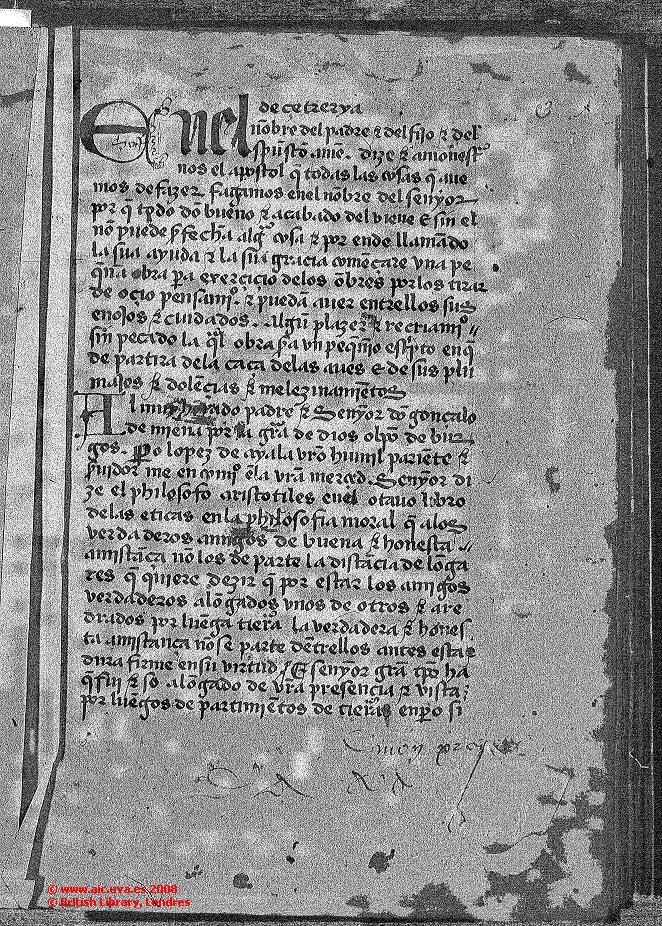 de cetrerya
En el
nõbre del padre ⁊ del fijo ⁊ del
spũ stõ amẽ. dize ⁊ amonesta
nos el apostol q̃ todas las cosas q̃ aue
mos de fazer fagamos enel nõbre del senyor
por q̃ todo dõ bueno ⁊ acabado del viene e sin el
nõ puede ser fecha algũa cosa ⁊ por ende llamãdo
la sua ayuda ⁊ la sua gracia começare vna pe
q̃na obra pa exercicio delos õbres por los tirar
de oçio pensamiº. ⁊ puedã auer entrellos sus
enojos ⁊ cuidados. Algũ plazer ⁊ recriamiº
sin pecado la q̃l obra sera vn peq̃nio escpto en q̃
de partira dela caça delas aues e de sus plu
majes ⁊ dolẽcias ⁊ melezinamiẽtos
Al muy hõrado padre ⁊ Senyor dõ gonçalo
de miena por la grã de dios obpõ de bur
gos. Po lopez de ayala vrõ humil pariẽte ⁊
seruidor me en comiº ẽla vrã merçed. Senyor di
ze el philosofo aristotiles enel otauo libro
delas eticas en la philosofia moral q̃ alos
verdaderos amigos de buena ⁊ honesta
amistãca nõ los de parte la distãcia de loga
res q̃ quiere dezir q̃ por estar los amigos
verdaderos alõgados vnos de otros ⁊ are
drados por luẽga tierra la verdadera ⁊ hones
ta amistança nõ se parte dẽtrellos antes esta
dura firme en su virtud E senyor grã tpõ ha
q̃ fui ⁊ so alõgado de vrã presencia ⁊ vista
por luẽgos de partimiẽtos de tierras enpo si
© www.aic.uva.es 2008
© British Library, Londres